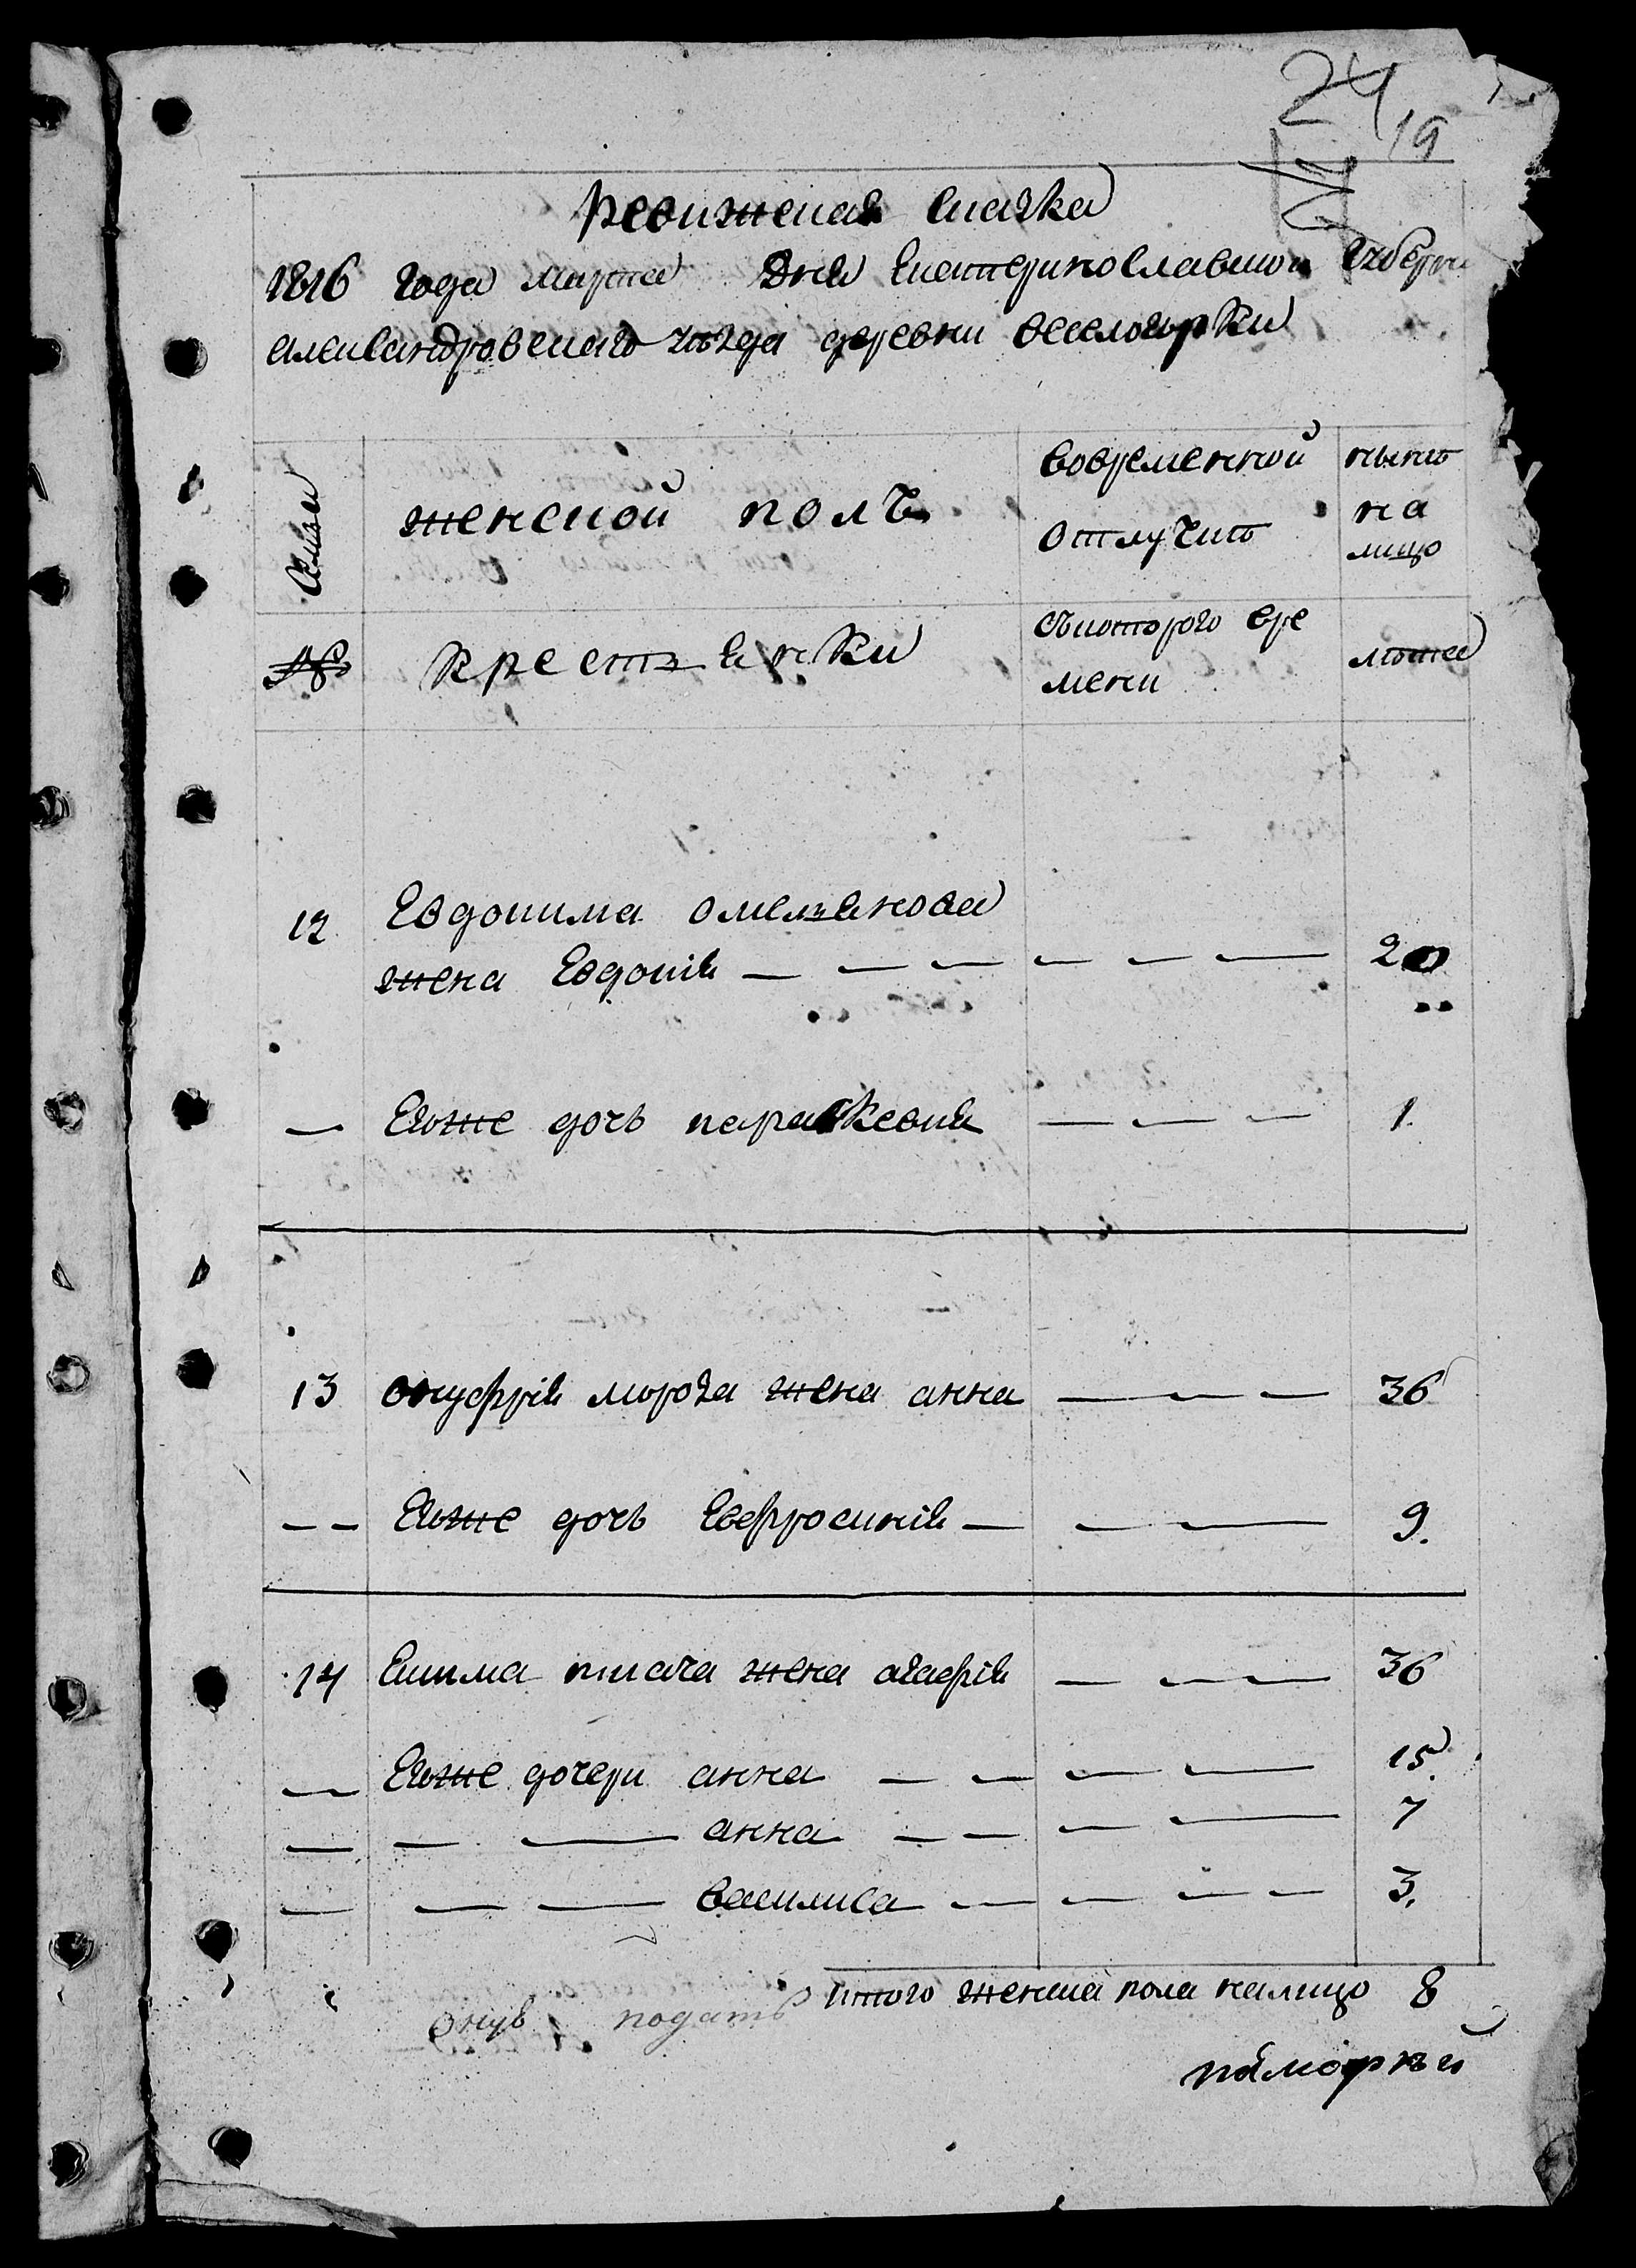 24
19
ревижская скаска
1816 года марта Дня Екатеринославской Губерни
александровскаго уѣзда деревни веселогорки
Семьи
женской полъ
вовременной
отлучкѣ
нынѣ
на
лицо
№
крестьянки
съкоторого вре
мени
лѣта
12 Евдокима омельянова
жена Евдокія 20
Егоже дочь парасковия 1.
13 онуфрія мороза жена анна 36
Егоже дочь Евфросинія 9.
14 Екима ткача жена агафія 36
Егоже дочери анна 15.
анна 7
василиса 3.
итого женска пола налицо 8
подать